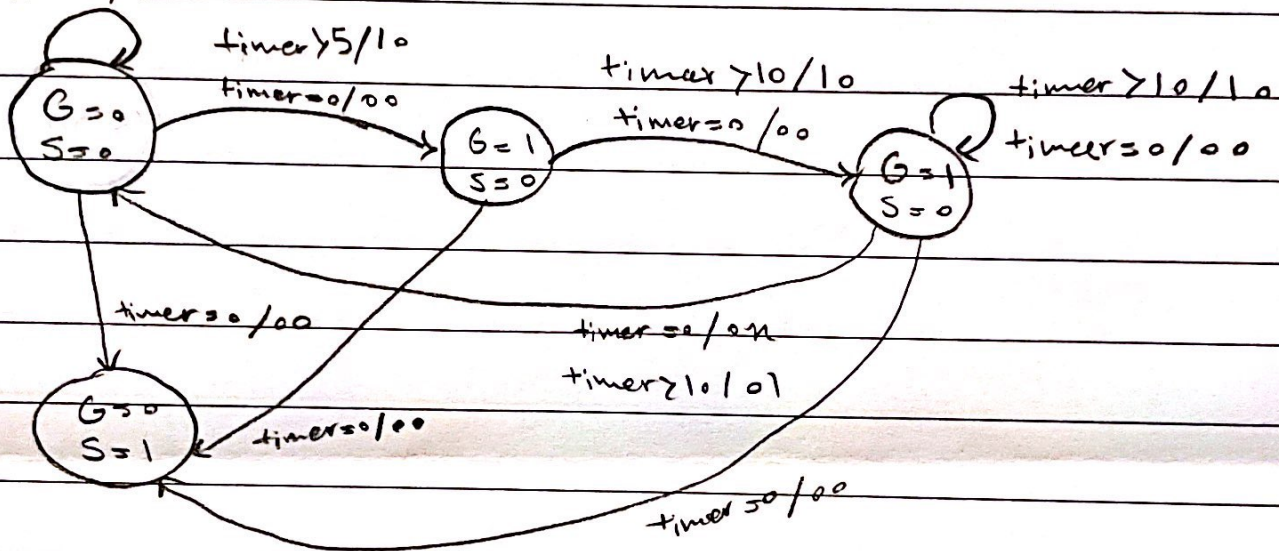 timer>5/10
timer=0/00
G=0
S=0
G=1
S=0
timer>10/10
timer=0/00
G=1
S=0
timer>10/10
timer=0/00
timer=0/00
timer=0/0n
timer>10/01
G=0
S=1
timer=0/00
timer=0/00